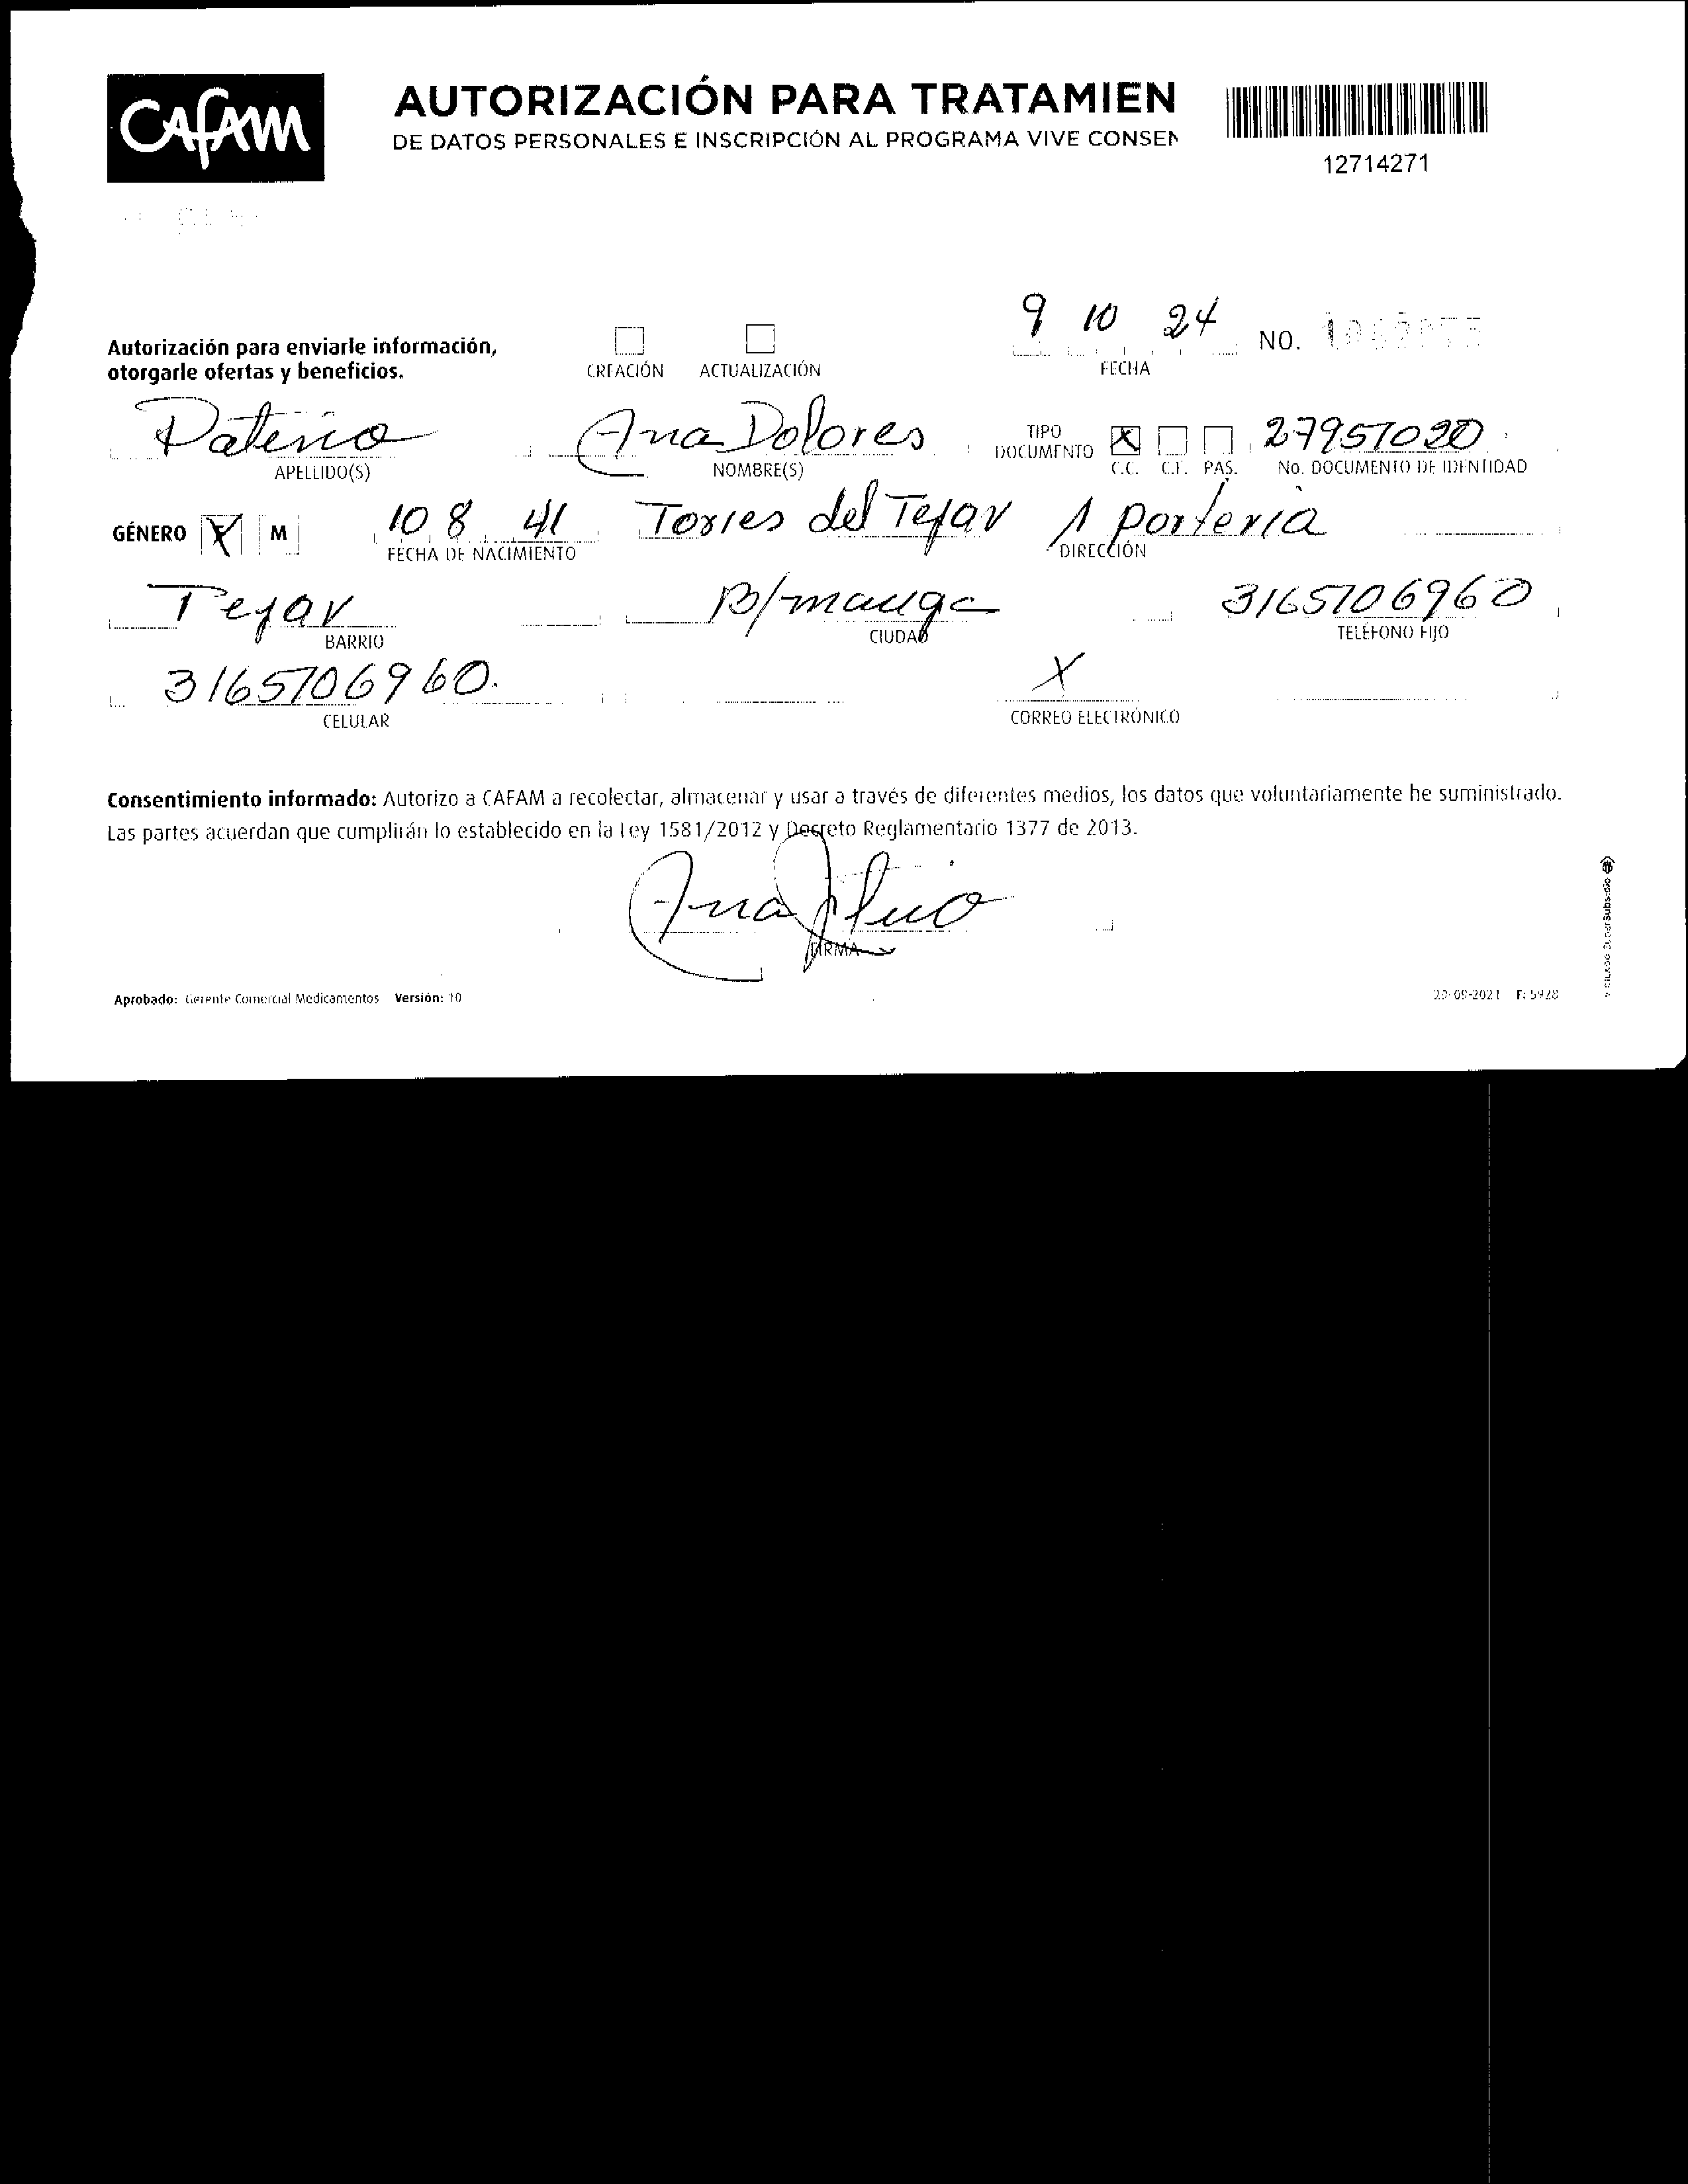 CAFAM
AUTORIZACIÓN PARA TRATAMIEN
DE DATOS PERSONALES E INSCRIPCIÓN AL PROGRAMA VIVE CONSEN
12714271
Autorización para enviarle información,
otorgarle ofertas y beneficios.
CREACIÓN ACTUALIZACIÓN
9 10 24
FECHA
NO.
Patiño Ana Dolores
APELLIDO(S) NOMBRE(S)
TIPO DOCUMENTO X C.C. C.E. PAS.
27951020
No. DOCUMENTO DE IDENTIDAD
GÉNERO F M
10 8 41
FECHA DE NACIMIENTO
Torres del Tejar 1 portería
DIRECCIÓN
Tejar B/manga 3165706960
BARRIO CIUDAD TELÉFONO FIJO
3165706960. X
CELULAR CORREO ELECTRÓNICO
Consentimiento informado: Autorizo a CAFAM a recolectar, almacenar y usar a través de diferentes medios, los datos que voluntariamente he suministrado.
Las partes acuerdan que cumplirán lo establecido en la Ley 1581/2012 y Decreto Reglamentario 1377 de 2013.
Ana
FIRMA
Aprobado: Gerente Comercial Medicamentos Versión: 10
09-2021 F: 5928